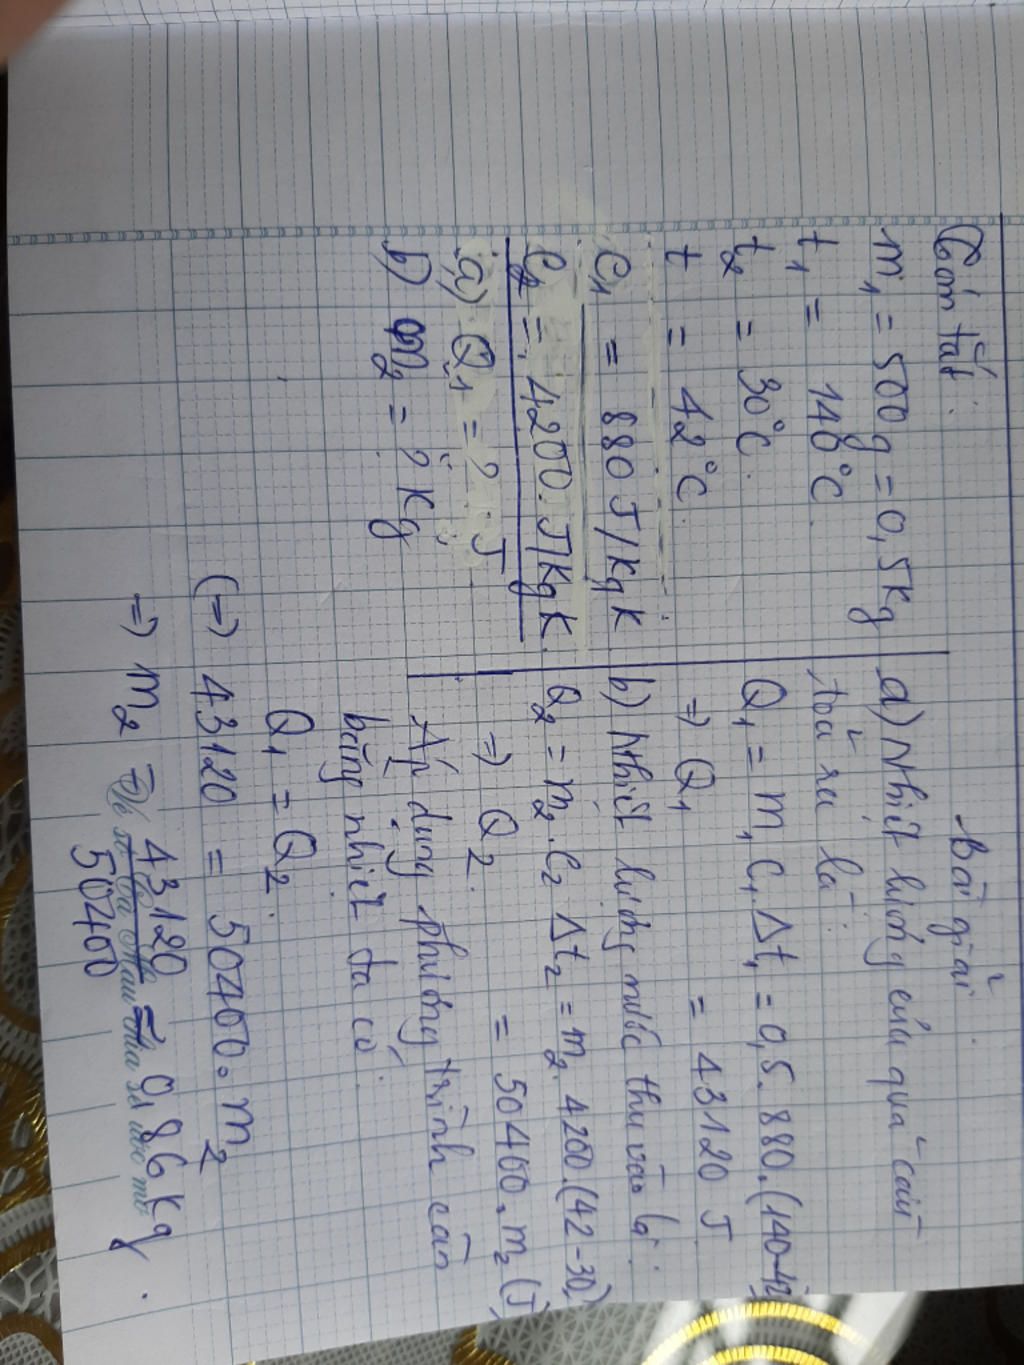 Tóm tắt:
m₁ = 500g = 0,5kg
t₁ = 140°C.
t₂ = 30°C.
t = 42°C.
C₁ = 880 J/kg K
C₂ = 4200. J/kg K.
a) Q₁ = ? J
b) m₂ = ? Kg
Bài giải.
a) Nhiệt lượng của quả cầu
toả ra là:
Q₁ = m₁ C₁. Δt₁ = 0,5. 880. (140-42
=> Q₁ = 43120 J
b) Nhiệt lượng nước thu vào là:
Q₂ = m₂. C₂ Δt₂ = m₂. 4200. (42-30)
=> Q₂. = 50400. m₂ (J)
Áp dụng phương trình cân
bằng nhiệt ta có:
Q₁ = Q₂.
(=) 43120 = 50400. m₂
=> m₂ = 43120 / 50400 = 0,86 kg.